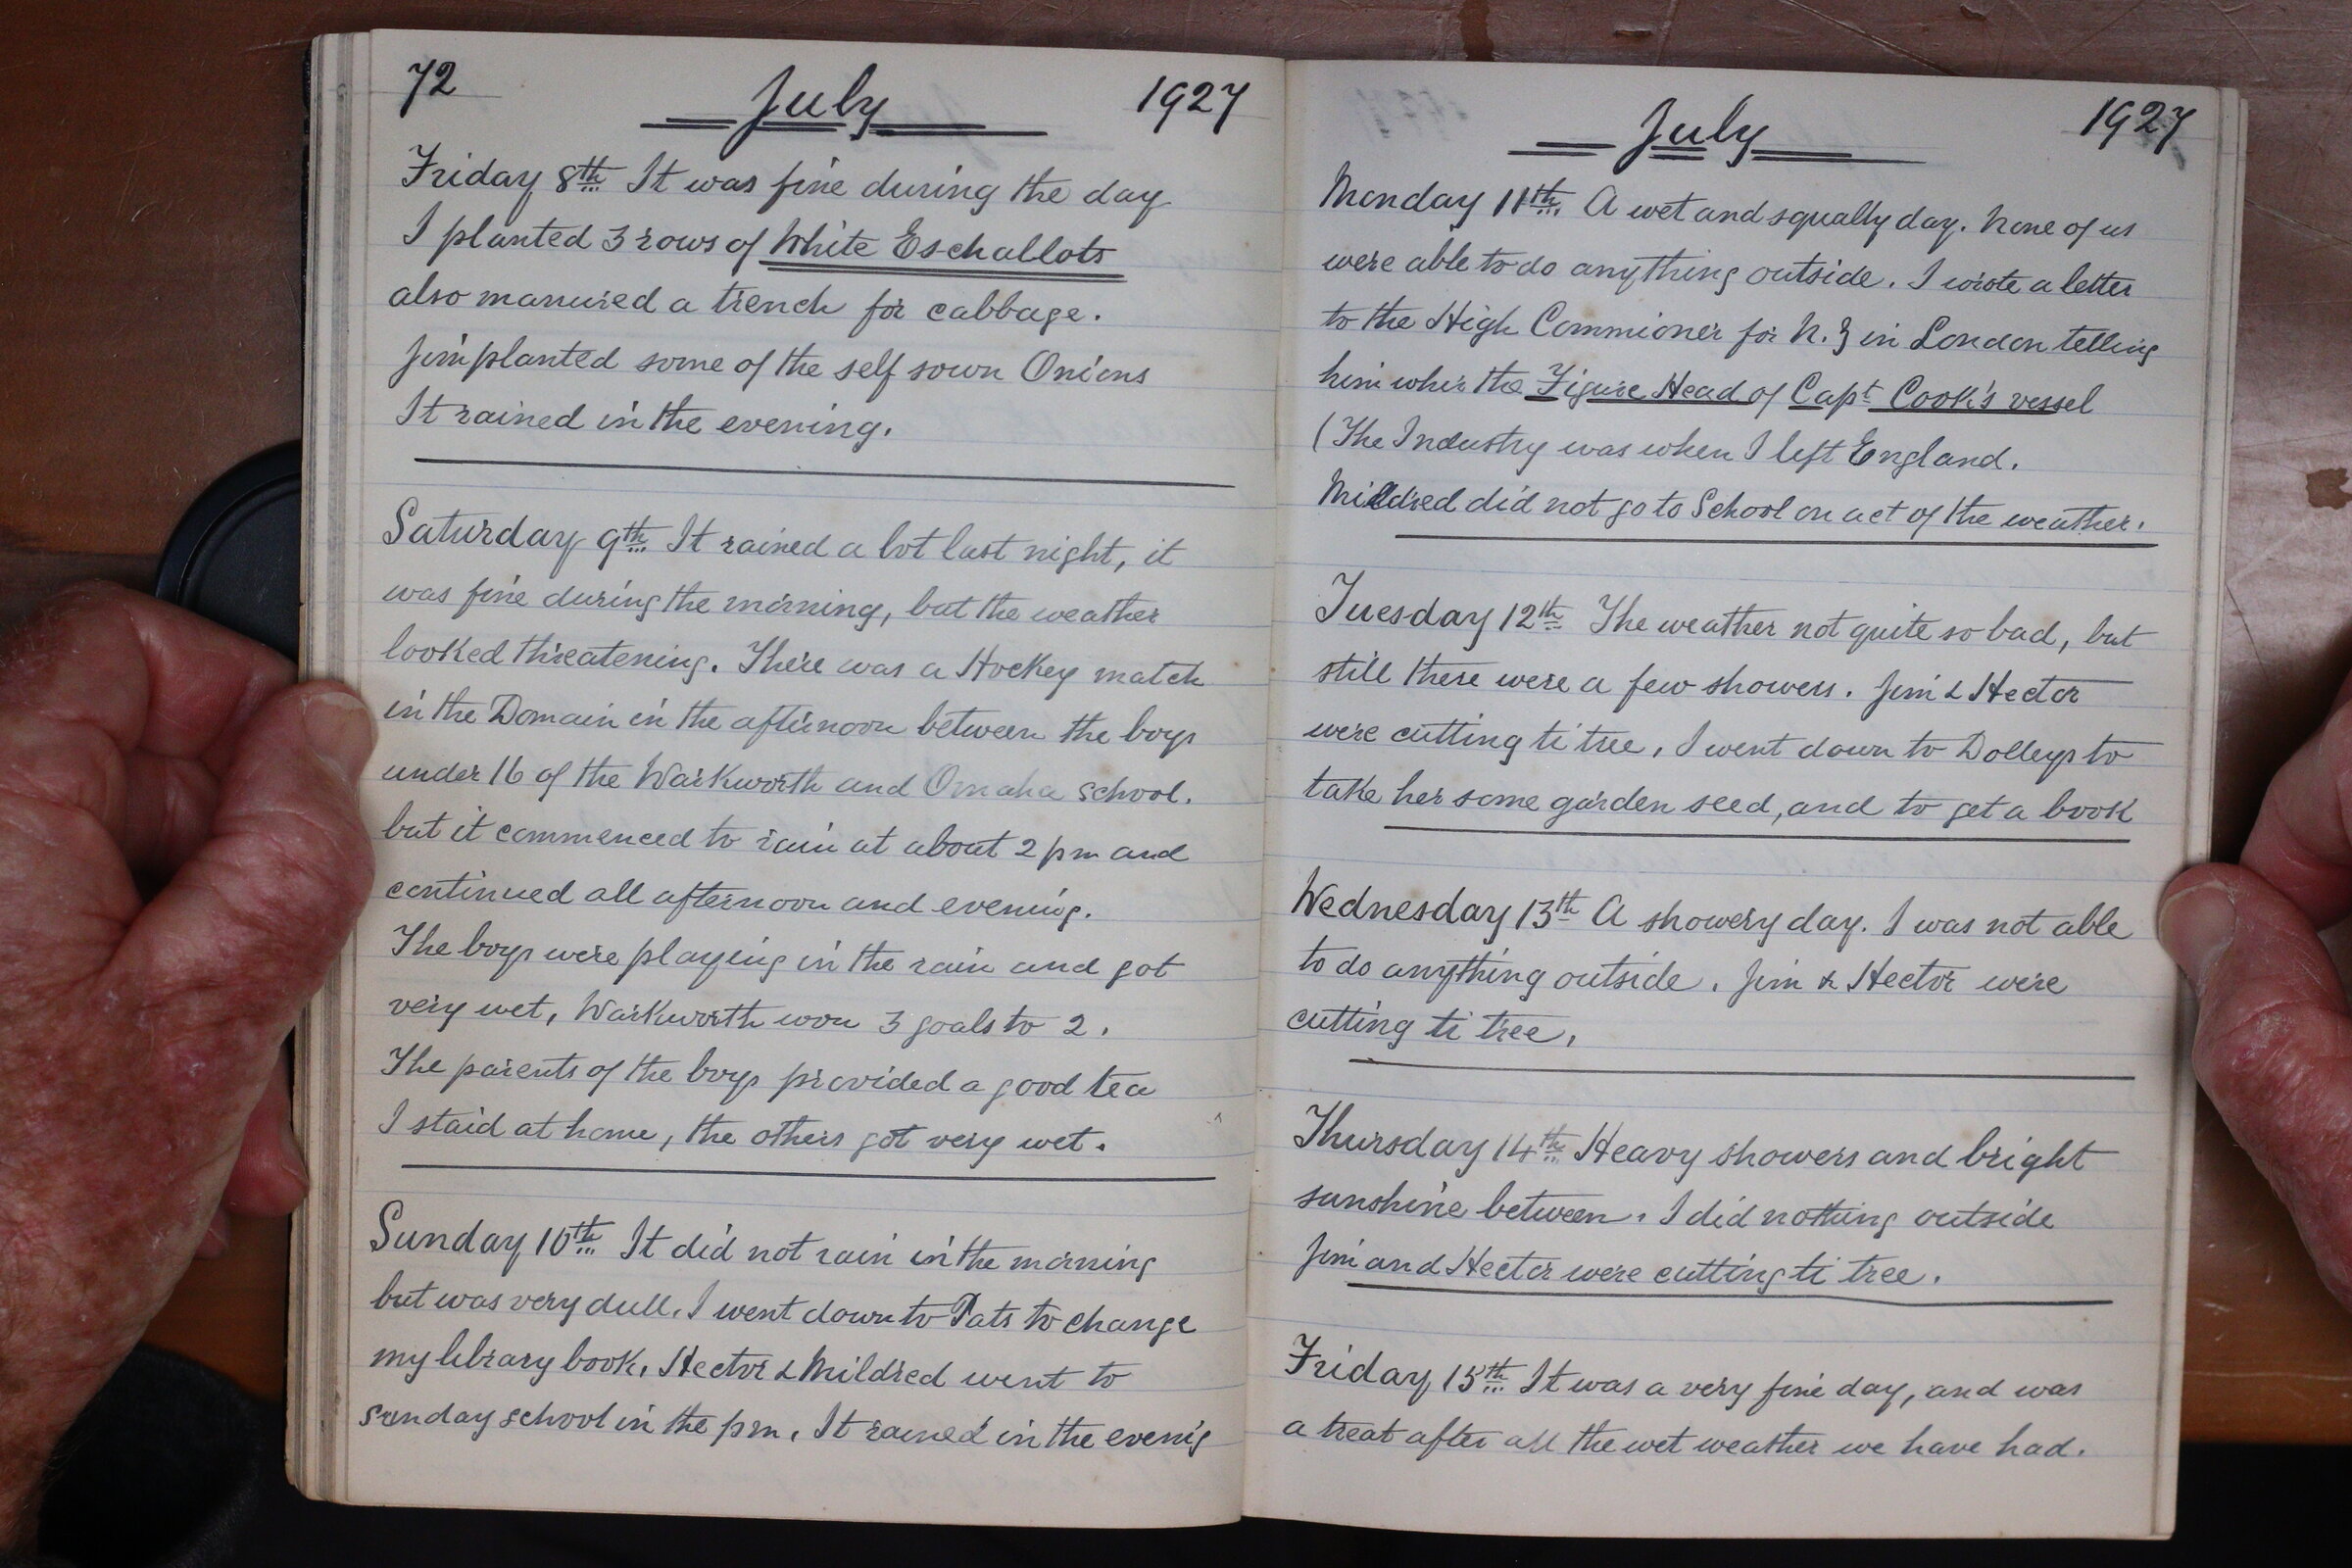 72 July 1927
Friday 8th It was fine during the day
I planted 3 rows of White Eschallots
also manured a trench for cabbage.
Jim planted some of the self sown Onions
It rained in the evening.
Saturday 9th It rained a lot last night, it
was fine during the morning, but the weather
looked threatening. There was a Hockey match
in the Domain in the afternoon between the boys
under 16 of the Warkworth and Omaha school.
but it commenced to rain at about 2 pm and
continued all afternoon and evening.
The boys were playing in the rain and got
very wet, Warkworth won 3 goals to 2.
The parents of the boys provided a good tea
I staid at home, the others got very wet.
Sunday 10th It did not rain in the morning
but was very dull. I went down to Pats to change
my library book. Hector & Mildred went to
sunday school in the pm. It rained in the evenig
July 1927
Monday 11th A wet and squally day. None of us
were able to do anything outside. I wrote a letter
to the High Commioner for N.Z in London telling
him wher the Figure Head of Capt Cook's vessel
(The Industry was when I left England.
Mildred did not go to School on act of the weather.
Tuesday 12th The weather not quite so bad, but
still there were a few showers. Jim & Hector
were cutting ti tree, I went down to Dolleys to
take her some garden seed, and to get a book
Wednesday 13th A showery day. I was not able
to do anything outside. Jim & Hector were
cutting ti tree.
Thursday 14th Heavy showers and bright
sunshine between. I did nothing outside
Jim and Hector were cutting ti tree.
Friday 15th It was a very fine day, and was
a treat after all the wet weather we have had.